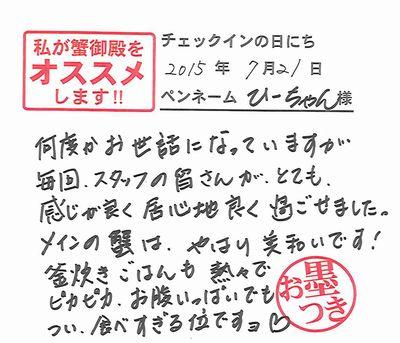 私が蟹御殿を
オススメ
します!!
チェックインの日にち
2015年 7月21日
ペンネーム ひーちゃん 様
何度かお世話になっていますが
毎回、スタッフの皆さんが、とても、
感じが良く居心地良く過ごせました。
メインの蟹は、やはり美味いです!
釜炊きごはんも熱々で
ピカピカ、お腹いっぱいでも
つい、食べすぎる位ですヨ♡
お墨つき